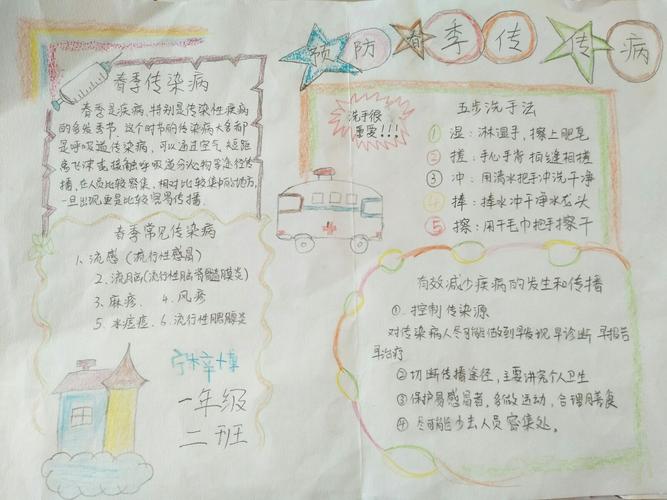 预防春季传传病
春季传染病
春季是疾病,特别是传染性疾病
的多发季节,这个时节的传染病大多都
是呼吸道传染病,可以通过空气、短距
离飞沫或接触呼吸道分泌物等途径传
播,在人员比较密集,相对比较集中的地方,
一旦出现更是比较容易传播.
春季常见传染病
1、流感(流行性感冒)
2、流脑(流行性脑脊髓膜炎)
3、麻疹. 4、风疹
5、水痘痘. 6、流行性腮腺炎
一年级
二班
洗手很
重要!!!
五步洗手法
① 湿:淋湿手,擦上肥皂
② 搓:手心手背指缝相搓
③ 冲:用清水把手冲洗干净
④ 捧:捧水冲干净水龙头
⑤ 擦:用干毛巾把手擦干
有效减少疾病的发生和传播
① 控制传染源
对传染病人尽可能做到早发现早诊断 早报告
早治疗
② 切断传播途径,主要讲究个人卫生
③ 保护易感冒者,多做运动,合理膳食
④ 尽可能少去人员密集处。